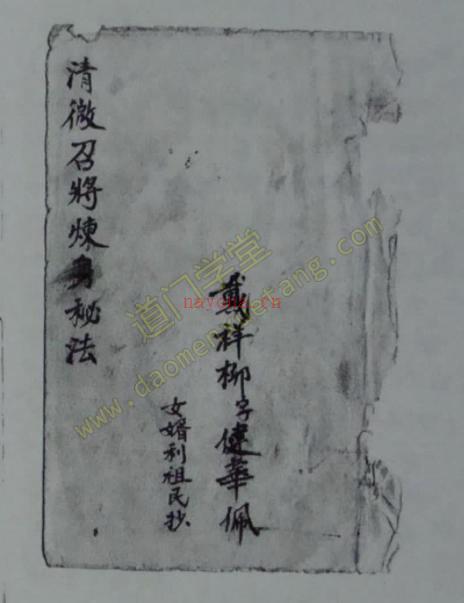 戴祥柳字健華佩
女婿利祖民抄
清微召將煉身秘法
道门学堂
www.daomenxuetang.com
nayona.cn